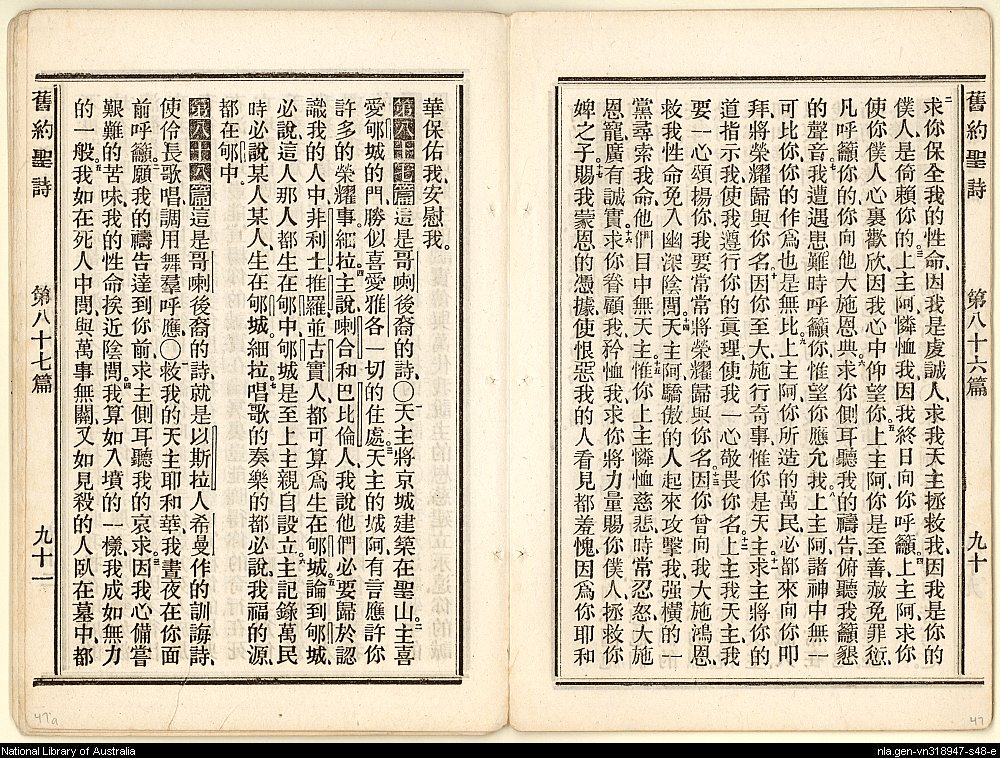 舊約聖詩 第八十六篇 九十
二求你保全我的性命、因我是虔誠人、求我天主拯救我、因我是你的
僕人、是倚賴你的、三上主阿、憐恤我、因我終日向你呼籲、四上主阿、求你
使你僕人心裏歡欣、因我心中仰望你、五上主阿、你是至善、赦免罪愆、
凡呼籲你的、你向他大施恩典、六求你側耳聽我的禱告、俯聽我籲懇
的聲音、七我遭遇患難時呼籲你、惟望你應允我、八上主阿、諸神中無一
可比你、你的作爲也是無比、九上主阿、你所造的萬民、必都來向你叩
拜、將榮耀歸與你名、十因你至大、施行奇事、惟你是天主、十一求主將你的
道指示我、使我遵行你的眞理、使我一心敬畏你名、十二上主我天主、我
要一心頌揚你、我要常常將榮耀歸與你名、十三因你曾向我大施鴻恩、
救我性命、免入幽深陰間、十四天主阿、驕傲的人起來攻擊我、强橫的一
黨尋索我命、他們目中無天主、十五惟你上主、憐恤慈悲、時常忍怒、大施
恩寵、廣有誠實、十六求你眷顧我、矜恤我、求你將力量賜你僕人、拯救你
婢之子、十七賜我蒙恩的憑據、使恨惡我的人看見都羞愧、因爲你耶和
華保佑我、安慰我。
第八十七篇 這是哥喇後裔的詩、〇天主將京城建築在聖山、二主喜
愛郇城的門、勝似喜愛雅各一切的住處、三天主的城阿、有言應許你
許多的榮耀事、細拉、四主說、喇合和巴比倫人、我說他們必要歸於認
識我的人中、非利士、推羅、並古實人、都可算爲生在郇城、五論到郇城、
必說、這人那人都生在郇中、郇城是至上主親自設立、六主記錄萬民
時、必說、某人某人、生在郇城、細拉、七唱歌的奏樂的都必說、我福的源
都在郇中。
第八十八篇 這是哥喇後裔的詩、就是以斯拉人希曼作的訓誨詩、
使伶長歌唱、調用舞羣呼應、〇救我的天主耶和華、我晝夜在你面
前呼籲、二願我的禱告達到你前、求主側耳聽我的哀求、三因我心備嘗
艱難的苦味、我的性命挨近陰間、四我算如入墳的一樣、我成如無力
的一般、五我如在死人中間、與萬事無關、又如見殺的人臥在墓中、都
舊約聖詩 第八十七篇 九十一
47a
47
National Library of Australia
nla.gen-vn318947-s48-e